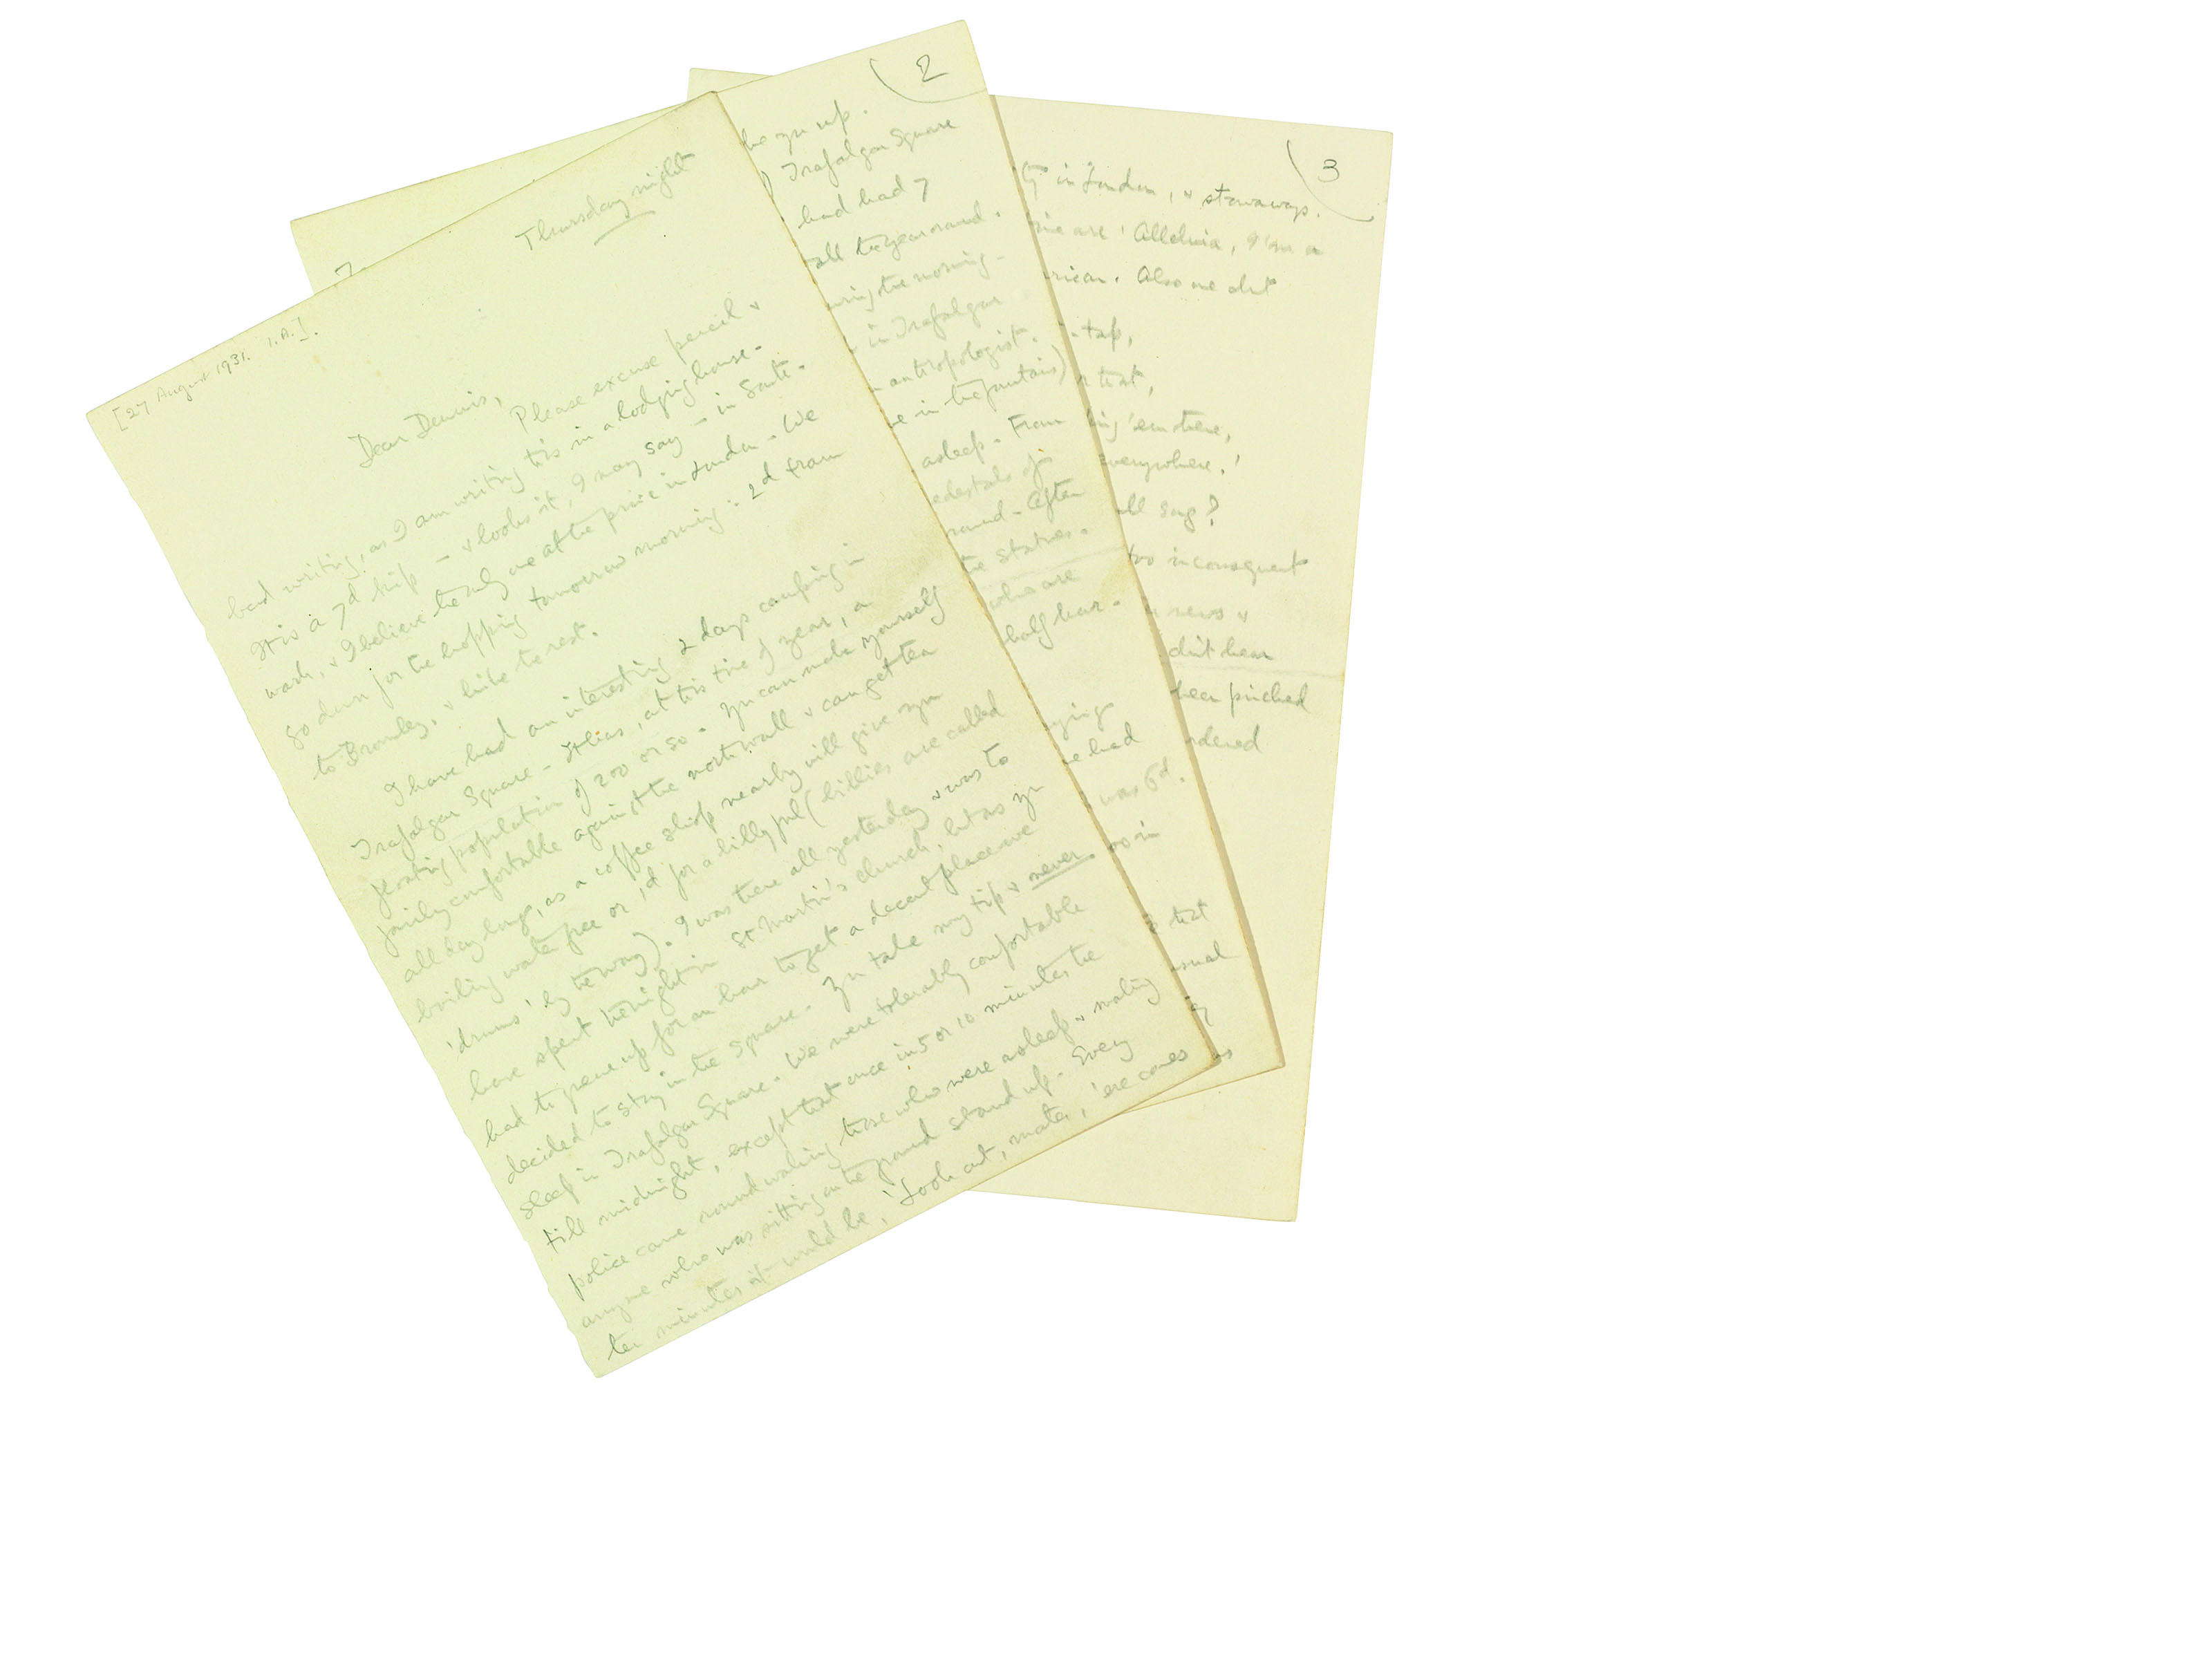 [27 August 1931. I.A.].
Thursday night
Dear Dennis,
Please excuse pencil &
bad writing, as I am writing this in a lodging house.
It is a 7d kip – & looks it, I may say – in Southwark, & I believe the only one at the price in London. We
go down for the hopping tomorrow morning: 2d tram
to Bromley, & hike the rest.
I have had an interesting 2 days camping in
Trafalgar Square. It has, at this time of year, a
floating population of 200 or so. You can make yourself
fairly comfortable against the north wall & can get tea
all day long, as a coffee shop nearby will give you
boiling water free or 1d for a billy ful (billies are called
'drums' by the way). I was there all yesterday & was to
have spent the night in St Martin's church, but as you
had to queue up for an hour to get a decent place we
decided to stay in the Square. You take my tip & never
sleep in Trafalgar Square. We were tolerably comfortable
till midnight, except that once in 5 or 10 minutes the
police came round waking those who were asleep & making
anyone who was sitting on the ground stand up. Every
ten minutes it would be, 'Look out, mates, 'ere comes
2
you up.
Trafalgar Square
had had 7
all the year round.
the morning.
in Trafalgar
anthropologist.
in the fountains)
asleep. From
of
round. After
the statues.
who are
half hour.
had
was 6d.
so in
that
usual
3
in London, & stowaways.
are 'Alleluia, I'm a
Also one abt
tap,
that,
'em there,
everywhere.'
all sing?
too inconsequent
news &
didn't hear
been pinched